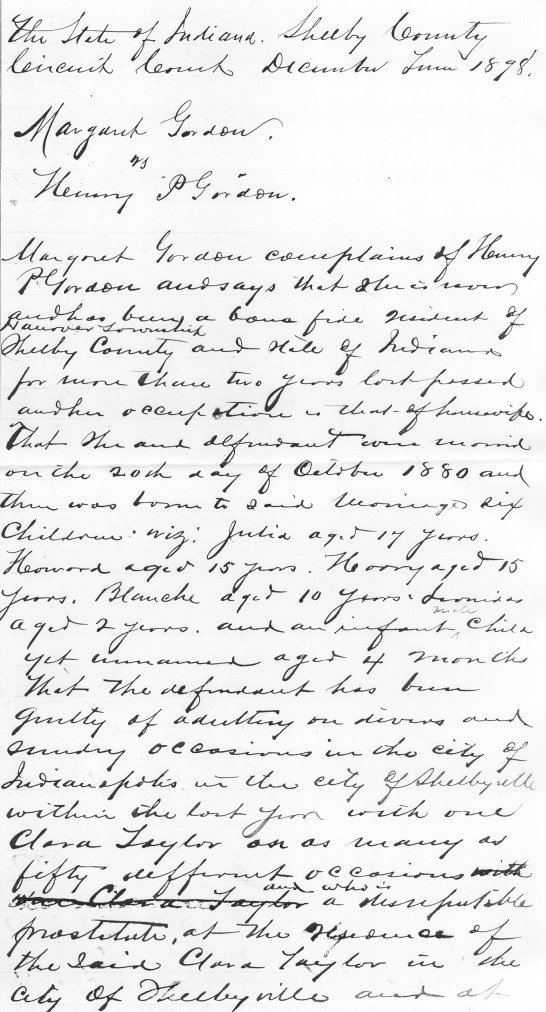 The State of Indiana. Shelby County
Circuit Court December Term 1898.
Margaret Gordon.
vs
Henry P Gordon.
Margaret Gordon complains of Henry
P Gordon and says that she is now
and has been a bona fide resident of
Hanover Township
Shelby County and State of Indiana
for more than two years last passed
and her occupation is that of housewife.
That she and defendant were married
on the 20th day of October 1880 and
there was born to said marriage six
Children: viz: Julia aged 17 years.
Howard aged 15 years. Harry aged 15
years. Blanche aged 10 years. Leonidas
aged 2 years. and an infant male Child
yet unnamed aged 4 months
That the defendant has been
guilty of adultry on divers and
sundry occasions in the city of
Indianapolis in the city of Shelbyville
within the last year with one
Clara Taylor on as many as
fifty different occasions with
Clara Taylor and who is a disreputable
prostitute, at the residence of
the said Clara Taylor in the
city of Shelbyville and at